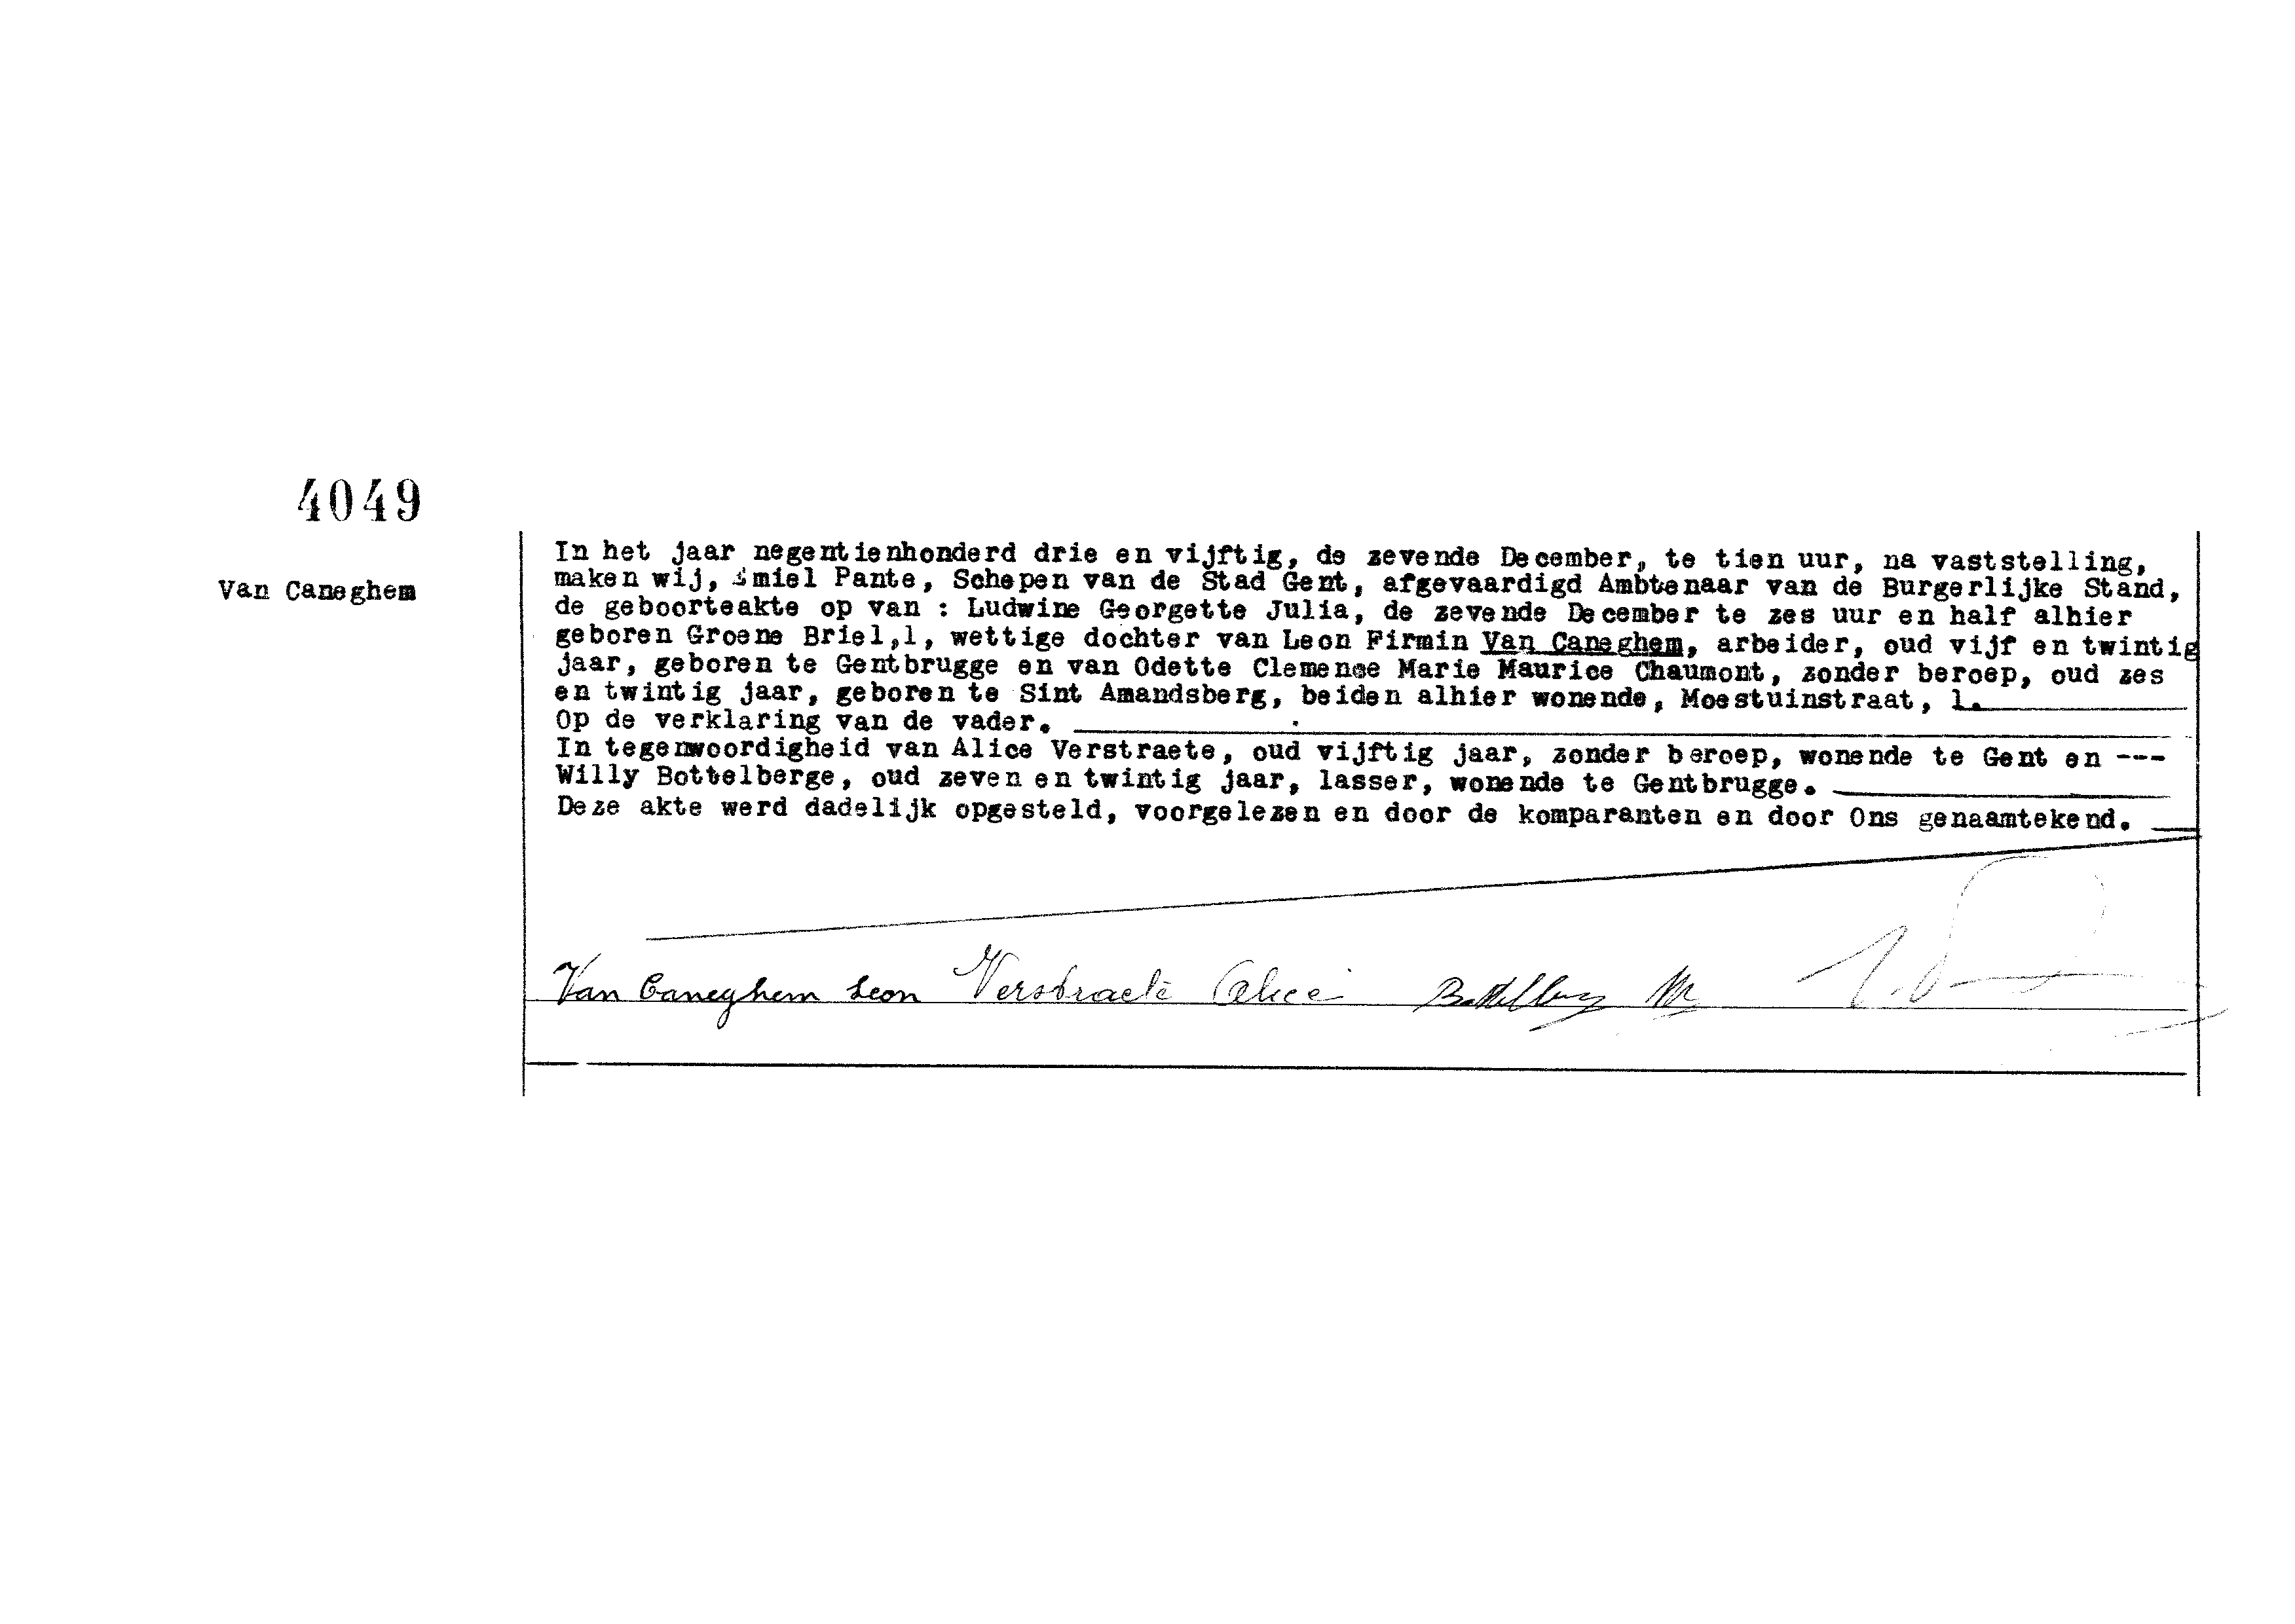 4049
Van Caneghem
In het jaar negentienhonderd drie en vijftig, de zevende December, te tien uur, na vaststelling,
maken wij, Emiel Pante, Schepen van de Stad Gent, afgevaardigd Ambtenaar van de Burgerlijke Stand,
de geboorteakte op van : Ludwine Georgette Julia, de zevende December te zes uur en half alhier
geboren Groene Briel,1, wettige dochter van Leon Firmin Van Caneghem, arbeider, oud vijf en twintig
jaar, geboren te Gentbrugge en van Odette Clemence Marie Maurice Chaumont, zonder beroep, oud zes
en twintig jaar, geboren te Sint Amandsberg, beiden alhier wonende, Moestuinstraat, 1.
Op de verklaring van de vader.
In tegenwoordigheid van Alice Verstraete, oud vijftig jaar, zonder beroep, wonende te Gent en ---
Willy Bottelberge, oud zeven en twintig jaar, lasser, wonende te Gentbrugge.
Deze akte werd dadelijk opgesteld, voorgelezen en door de komparanten en door Ons genaamtekend.
Van Caneghem Leon Verstraete Alice